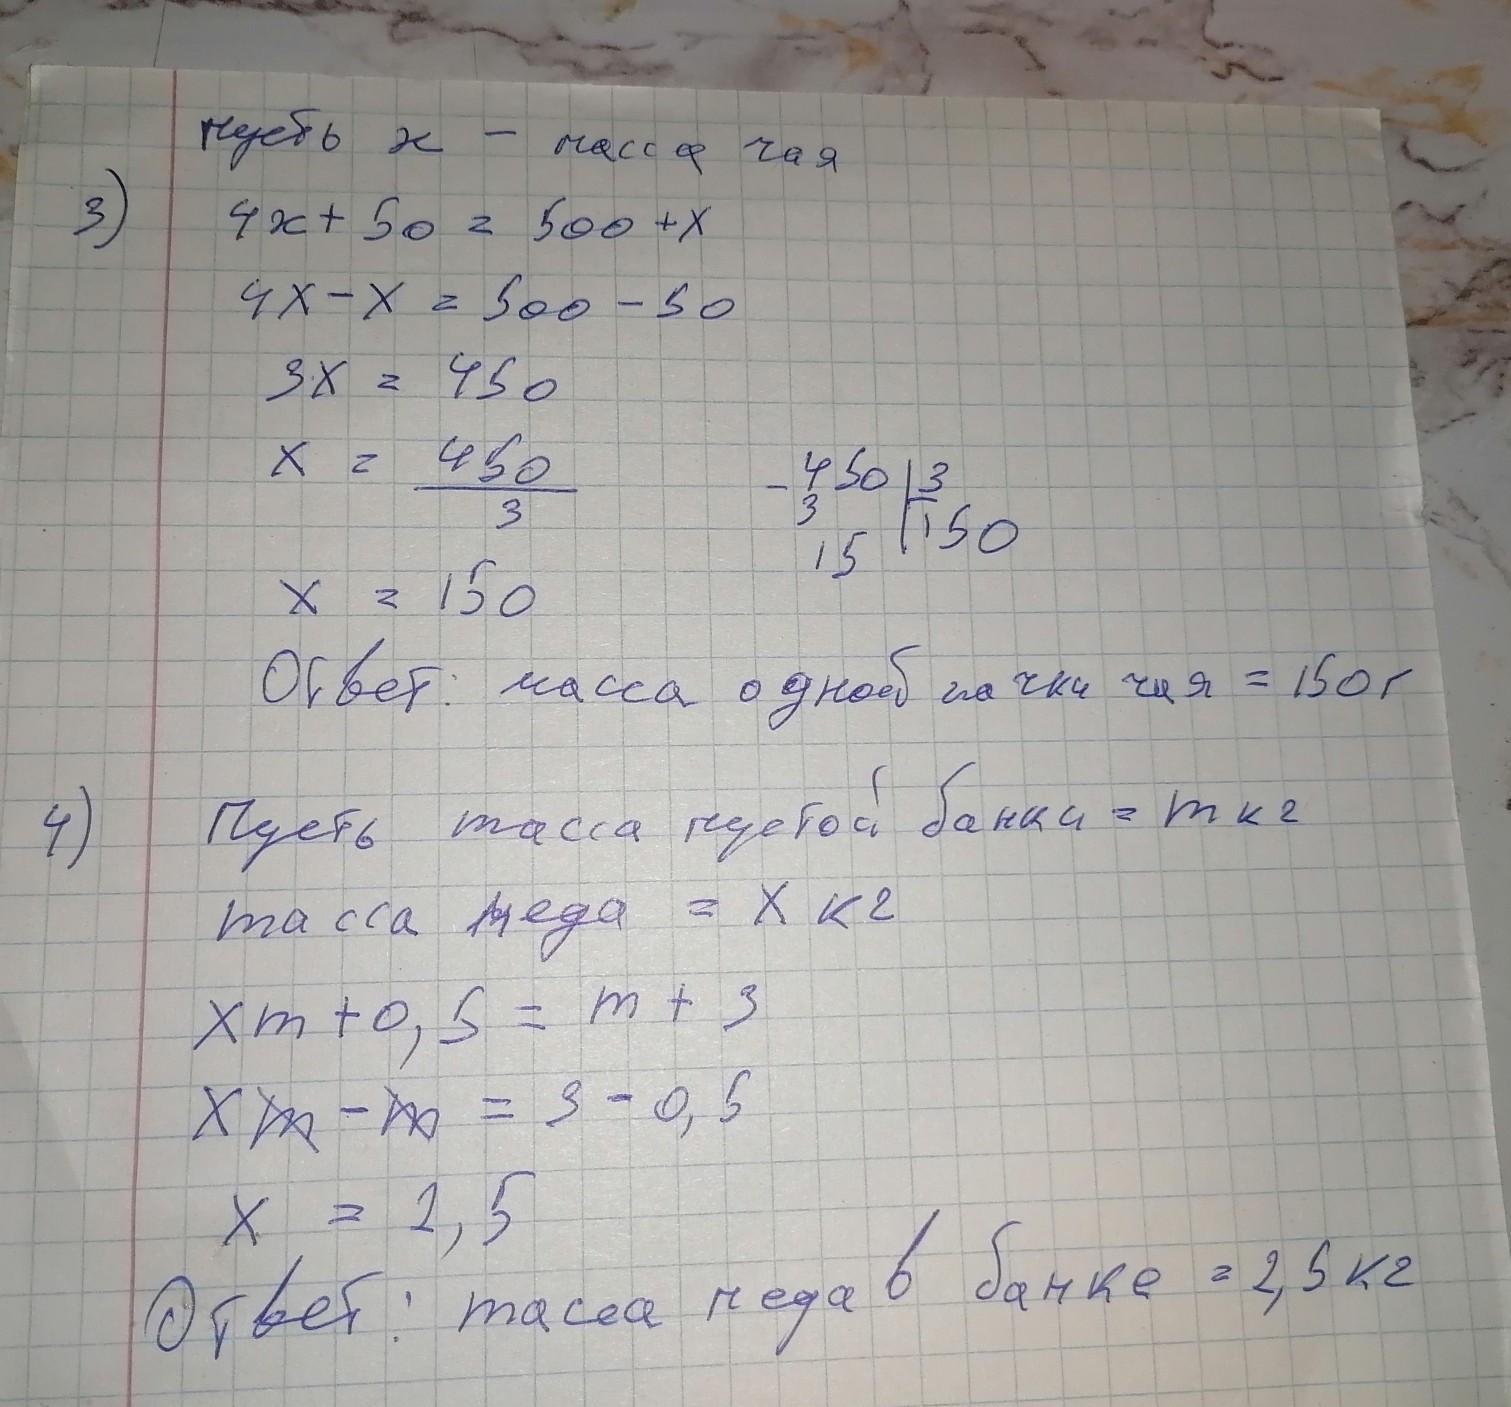 Пусть x - масса чая
3) 4x + 50 = 500 + x
4x - x = 500 - 50
3x = 450
x = 450/3
- 450 | 3
3 150
15
x = 150
Ответ: масса одной пачки чая = 150 г
4) Пусть масса пустой банки = m кг
масса меда = x кг
xm + 0,5 = m + 3
xm - m = 3 - 0,5
x = 2,5
Ответ: масса меда в банке = 2,5 кг